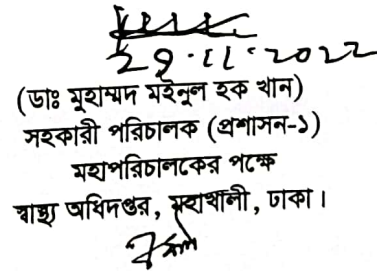 29.11.2022
(ডাঃ মুহাম্মদ মইনুল হক খান)
সহকারী পরিচালক (প্রশাসন-১)
মহাপরিচালকের পক্ষে
স্বাস্থ্য অধিদপ্তর, মহাখালী, ঢাকা।